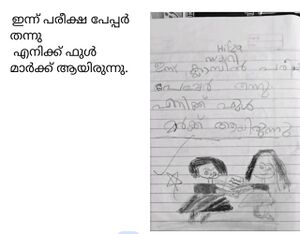 ഇന്ന് പരീക്ഷ പേപ്പർ
തന്നു
എനിക്ക് ഫുൾ
മാർക്ക് ആയിരുന്നു.
ഇന്ന് ക്ലാസിൽ പരീ
പേപ്പർ തന്നു
എനിക്ക് ഫുൾ
മാർക്ക് ആയിരുന്നു